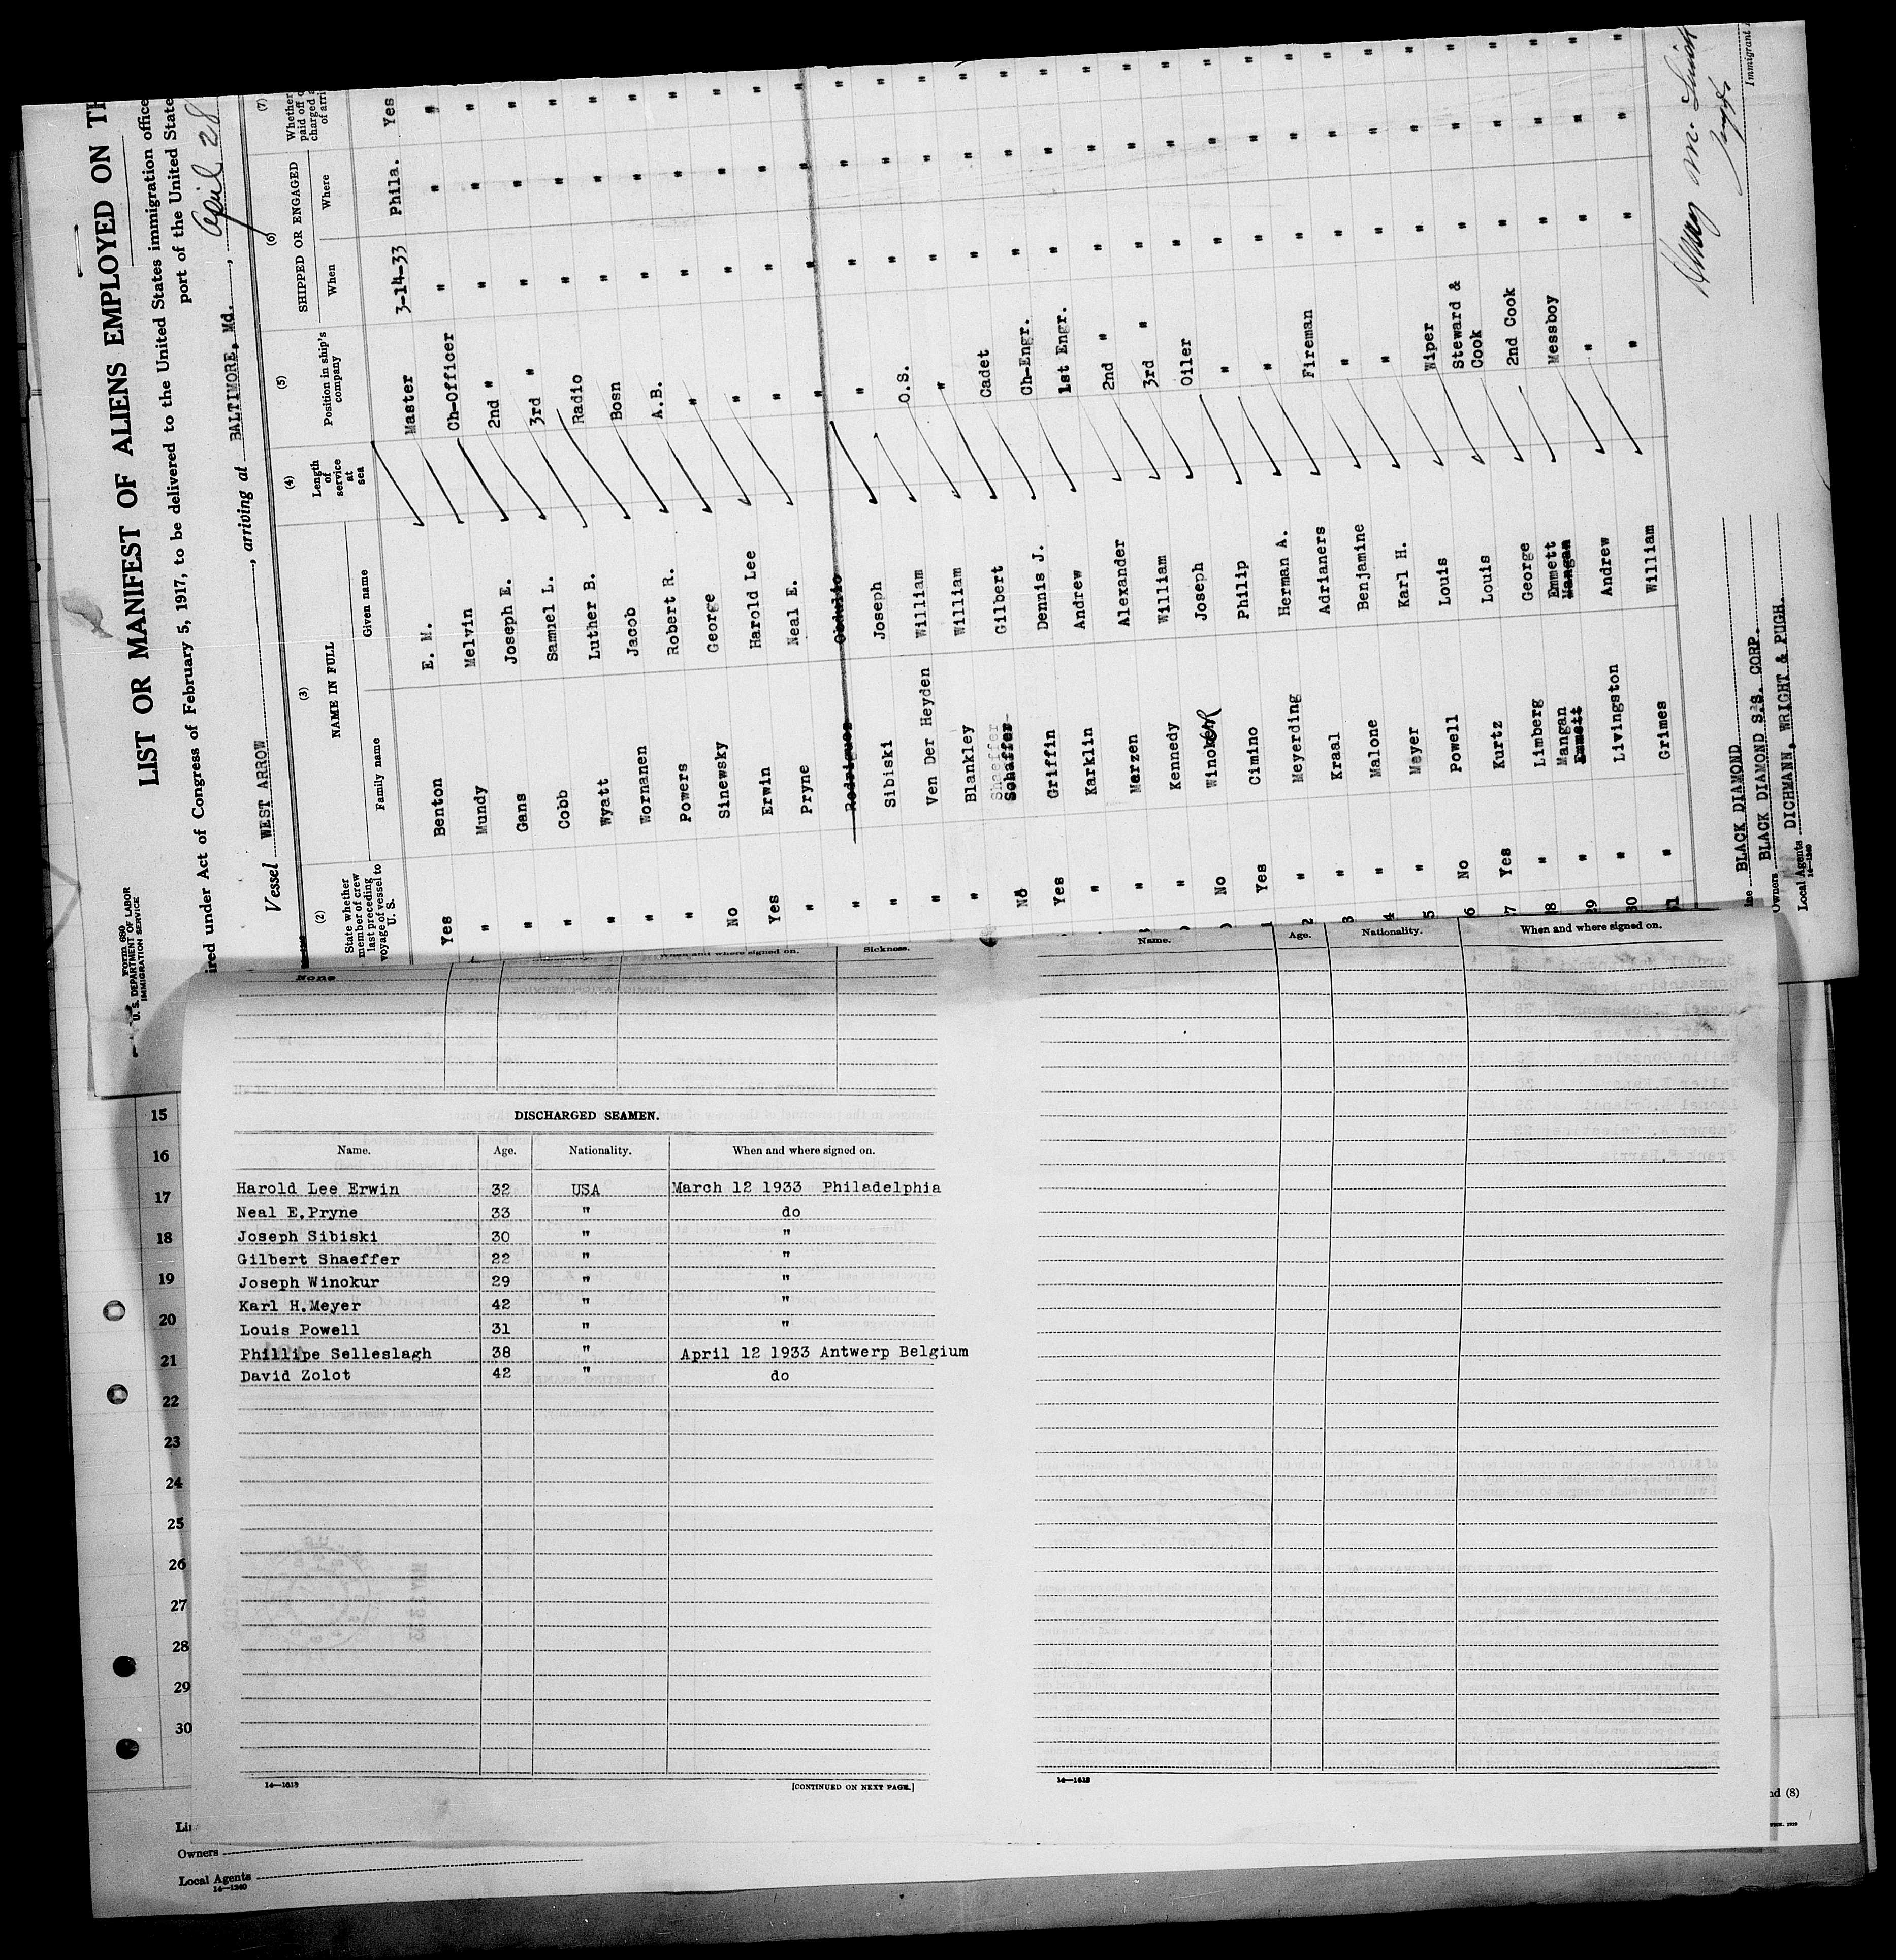 Form 680
U. S. DEPARTMENT OF LABOR
IMMIGRATION SERVICE
LIST OR MANIFEST OF ALIENS EMPLOYED ON TH
ired under Act of Congress of February 5, 1917, to be delivered to the United States immigration office
port of the United State
Vessel WEST ARROW, arriving at BALTIMORE, Md., April 28
(2) (3) (4) (5) (6) (7)
State whether member of crew last preceding voyage of vessel to U. S.
NAME IN FULL
Family name Given name
Length of service at sea
Position in ship's company
SHIPPED OR ENGAGED
When Where
Whether paid off o charged a of arri
Yes Benton E. M. Master 3-14-33 Phila. Yes
" Mundy Melvin Ch-Officer " " "
" Gans Joseph E. 2nd " " " "
" Cobb Samuel L. 3rd " " " "
" Wyatt Luther B. Radio " " "
" Wornanen Jacob Bosn " " "
" Powers Robert R. A.B. " " "
No Sinewsky George " " " "
Yes Erwin Harold Lee " " " "
" Pryne Neal E. " " " "
" Rodriguez Obdulio " " " "
" Sibiski Joseph " " " "
" Ven Der Heyden William O.S. " " "
" Blankley William " " " "
No Shaeffer Schaffer Gilbert Cadet " " "
Yes Griffin Dennis J. Ch-Engr. " " "
" Karklin Andrew 1st Engr. " " "
" Marzen Alexander 2nd " " " "
" Kennedy William 3rd " " " "
No Winokur Joseph Oiler " " "
Yes Cimino Philip " " " "
" Meyerding Herman A. " " " "
" Kraal Adrianers Fireman " " "
" Malone Benjamine " " " "
" Meyer Karl H. " " " "
No Powell Louis Wiper " " "
Yes Kurtz Louis Steward & Cook " " "
" Limberg George 2nd Cook " " "
" Mangan Emmett Emmett Mangan Messboy " " "
" Livingston Andrew " " " "
" Grimes William " " " "
ine BLACK DIAMOND
Owners BLACK DIAMOND S.S. CORP.
Local Agents DICHMANN, WRIGHT & PUGH.
14—1240
Immigrant
When and where signed on. Sickness.
None
DISCHARGED SEAMEN.
Name. Age. Nationality. When and where signed on.
Harold Lee Erwin 32 USA March 12 1933 Philadelphia
Neal E.Pryne 33 " do
Joseph Sibiski 30 " "
Gilbert Shaeffer 22 " "
Joseph Winokur 29 " "
Karl H.Meyer 42 " "
Louis Powell 31 " "
Phillipe Selleslagh 38 " April 12 1933 Antwerp Belgium
David Zolot 42 " do
14—1613
[CONTINUED ON NEXT PAGE.]
Name. Age. Nationality. When and where signed on.
14—1613
15
16
17
18
19
20
21
22
23
24
25
26
27
28
29
30
nd (8)
Owners
Local Agents
14—1240